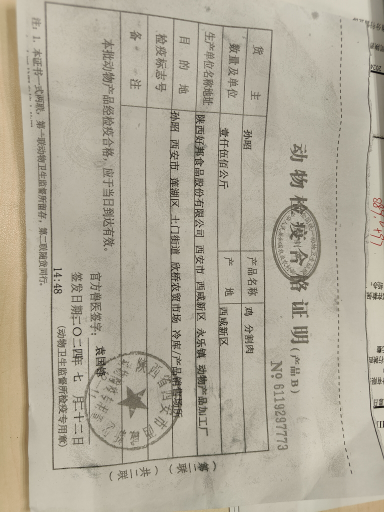 动物检疫合格证明(产品B)
No 6119297773
货主 孙昭 产品名称 鸡 分割肉
数量及单位 壹仟伍佰公斤 产地 西咸新区
生产单位名称地址 陕西好邦食品股份有限公司 西安市 西咸新区 永乐镇 动物产品加工厂
目的地 孙昭 西安市 莲湖区 土门街道 欣桥农贸市场 冷库/产品销售场所
检疫标志号
备注
本批动物产品经检疫合格,应于当日到达有效。
官方兽医签字:
签发日期:二〇二四年 七月二十二日
14:48
(动物卫生监督所检疫专用章)
(第二联 共二联)
注:1. 本证书一式两联,第一联动物卫生监督所留存,第二联随货同行。